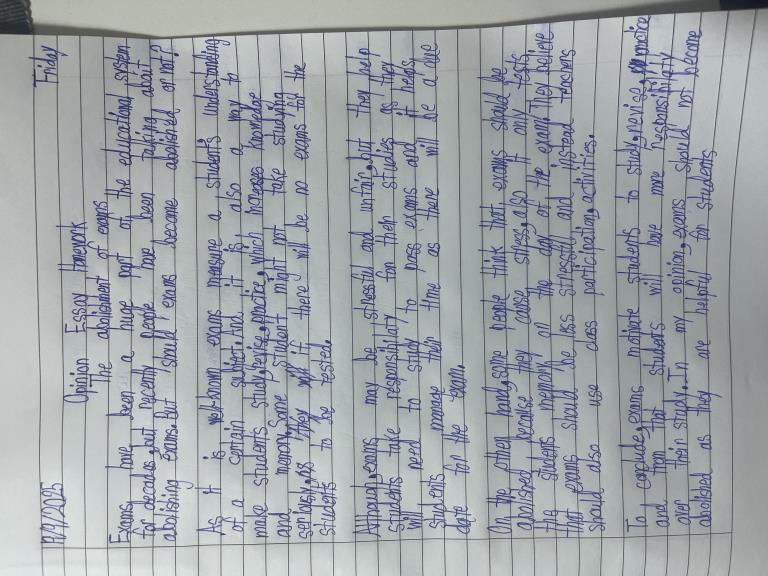 19/9/2025 Friday
Opinion Essay Homework
The abolishment of exams
Exams have been a huge part of the educational system
for decades, but recently people have been talking about
abolishing exams. But should exams become abolished or not?
As it is well-known exams measure a student's understanding
of a certain subject. And it is also a way to
make students study, revise, practice, which increases knowledge
and memory. Some student might not take studying
seriously, as they if there will be no exams for the
students to be tested.
Although, exams may be stressful and unfair, but they help
students take responsibility for their studies as they
will need to study to pass exams and it helps
students manage their time as there will be a due
date for the exam.
On the other hand, some people think that, exams should be
abolished because they cause stress, also it only tests
the students memory on the day of the exam. They believe
that exams should be less stressful and instead teachers
should also use class participation, activities.
To conclude, exams motivate students to study, revise, practice
and from that students will have more responsibility
over their study. In my opinion, exams should not become
abolished as they are helpful for students